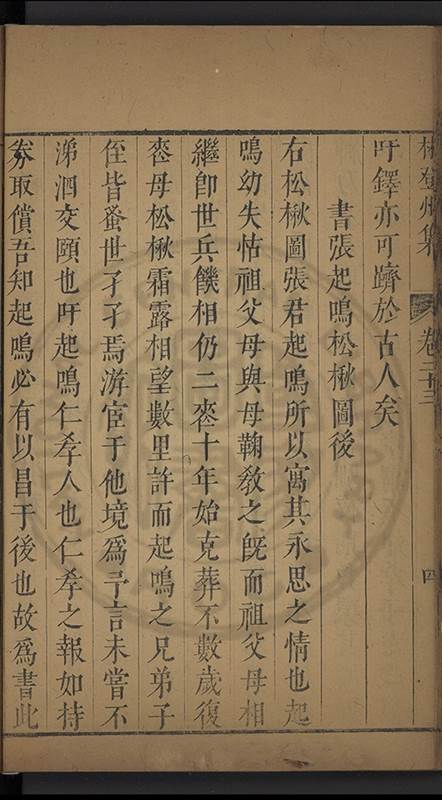 林登州集 卷二十三 四
吁鐸亦可躋於古人矣
書張起鳴松楸圖後
右松楸圖張君起鳴所以寓其永思之情也起
鳴幼失怙祖父母與母鞠敎之旣而祖父母相
繼卽世兵饑相仍二丧十年始克葬不數歲復
丧母松楸霜露相望數里許而起鳴之兄弟子
侄皆蚤世孑孑焉游宦于他境爲予言未嘗不
涕泗交頤也吁起鳴仁孝人也仁孝之報如持
券取償吾知起鳴必有以昌于後也故爲書此